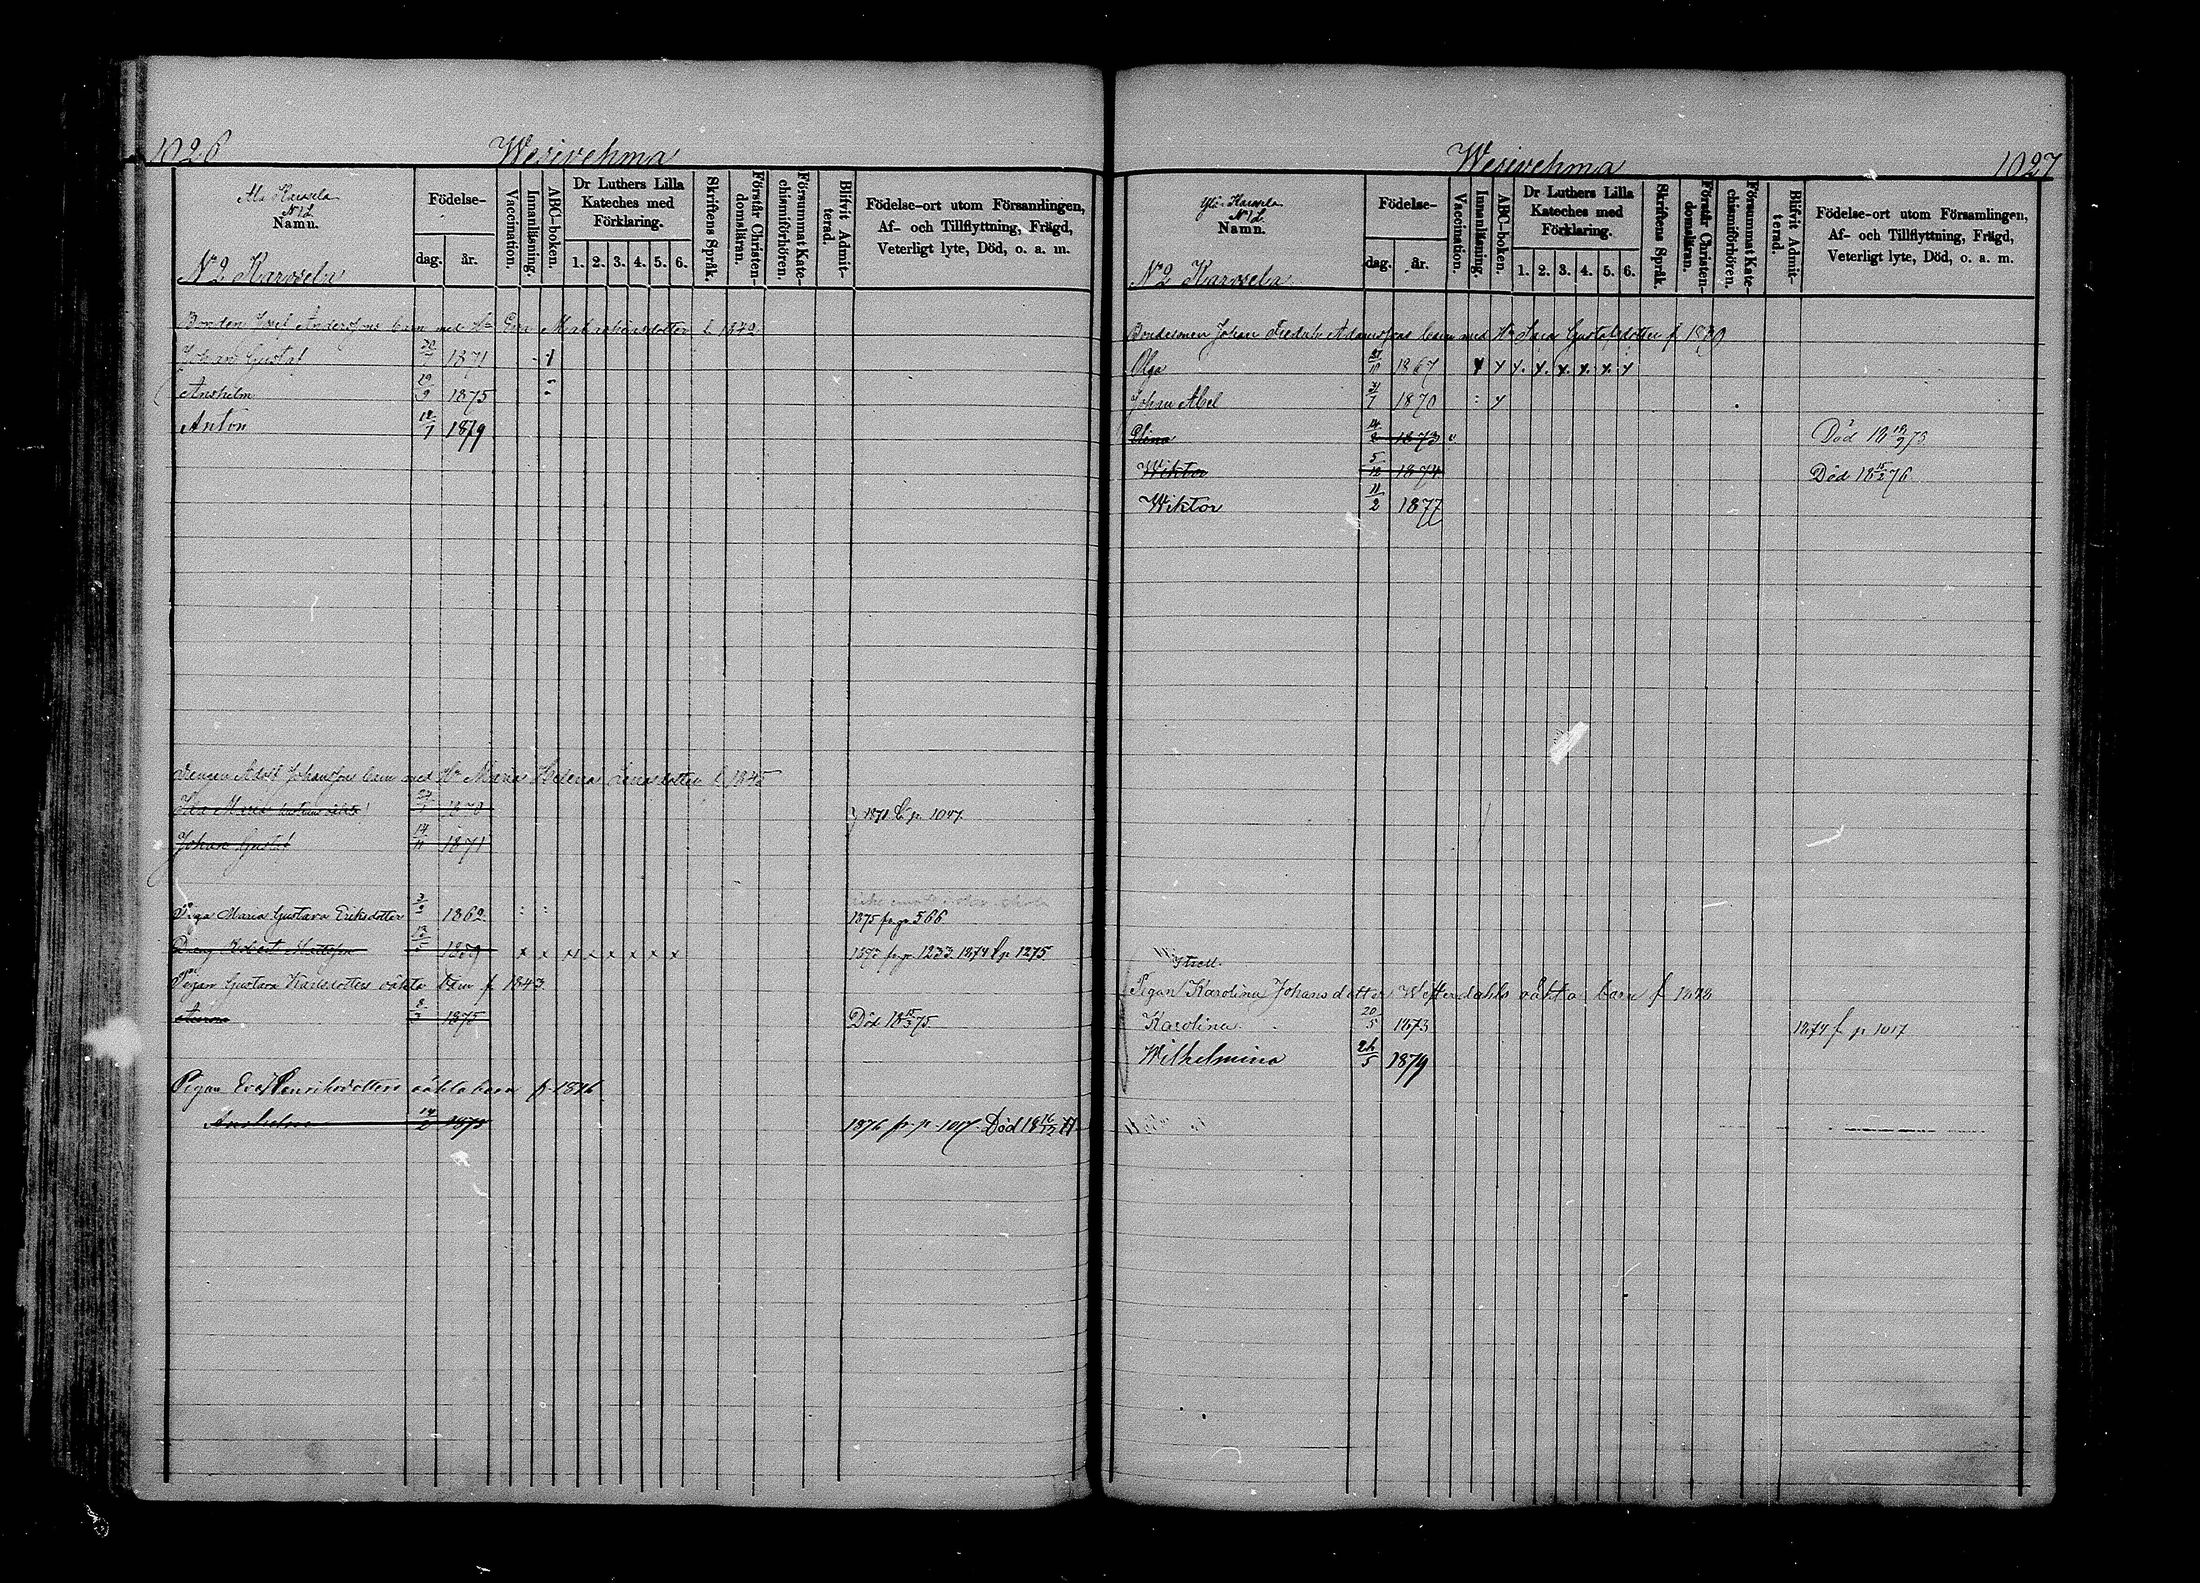 1026
Wesivehma
Ala Karsela
N:1 L.
Namn.
N:2 Karvela
Födelse-
dag. år.
Vaccination.
Innanläsning.
ABC-boken.
Dr Luthers Lilla
Kateches med
Förklaring.
1. 2. 3. 4. 5. 6.
Skriftens Språk.
Förstår Christen-
domsläran.
Försummat Kate-
chismiförhören.
Blifvit Admit-
terad.
Födelse-ort utom Församlingen,
Af- och Tillflyttning, Frägd,
Veterligt lyte, Död, o. a. m.
Bonden Josef Andersons barn med Ha Eva f. 1842
Johan Gustaf 1871
Anshelm 19/9 1875
Anton 12/1 1879
Drengen Adolf Johanssons barn med Hu Maria Helena f 1845
Ida Maria 1870 1871 p. 1047
Johan Gustaf 14/11 1871
Piga Maria Gustava Eriksdotter 3/2 1862 1875 fr p 566
Dreng Robert 1859 x x x x x x x x fr p 1233. 1874 p 1275
Pigan Gustava Karlsdotters oäkta barn f 1843
8/3 1875 Död 18 15/3 75
Pigan Eva Henriksdotters oäkta barn f 1846
Anshelm 14/2 1875 1876 fr p 1017 Död 18 77
Wesivehma
1027
Yli-Karsela
N:1 L.
Namn.
N:2 Karvela
Födelse-
dag. år.
Vaccination.
Innanläsning.
ABC-boken.
Dr Luthers Lilla
Kateches med
Förklaring.
1. 2. 3. 4. 5. 6.
Skriftens Språk.
Förstår Christen-
domsläran.
Försummat Kate-
chismiförhören.
Blifvit Admit-
terad.
Födelse-ort utom Församlingen,
Af- och Tillflyttning, Frägd,
Veterligt lyte, Död, o. a. m.
Bondesonen Johan Fredrik Adamssons barn med Hu Gustafsdotter f 1839
Olga 1867
Johan Abel 31/7 1870
Elina 14/2 1873 Död 18 19/9 73
Wiktor 5/12 1874 Död 18 15/2 76
Wiktor 11/2 1877
Pigan Karolina Johansdotter Westerdahls oäkta barn f
Karolina 20/5 1873 1874 f p 1017
Wilhelmina 26/5 1879